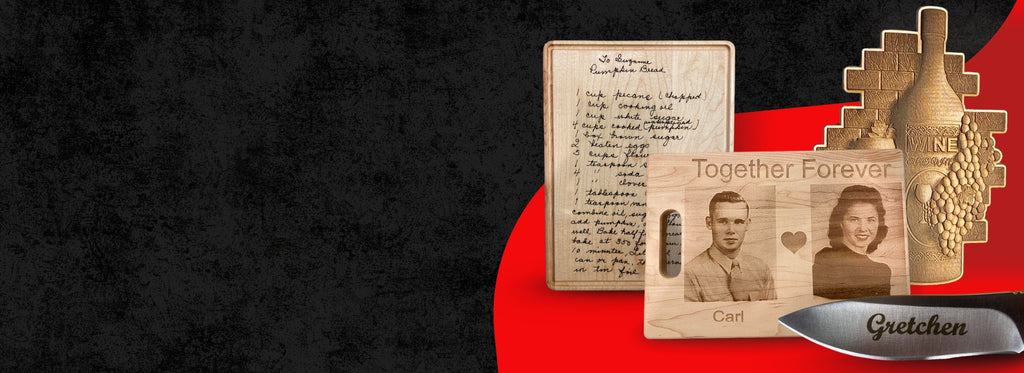 To Suzanne
Pumpkin Bread
1 cup pecans (chopped)
1 cup cooking oil
1 cup white sugar
4 cups cooked (pumpkin)
1 box brown sugar
2 beaten eggs
3 cups flour
1 teaspoon
4 " soda
1 " clove
1 tablespoon
1 teaspoon
combine oil, sug
and pumpkin,
well. Bake half
bake at 350 for
10 minutes,
can or pan,
in tin foil
Together Forever
Carl
WINE
Gretchen